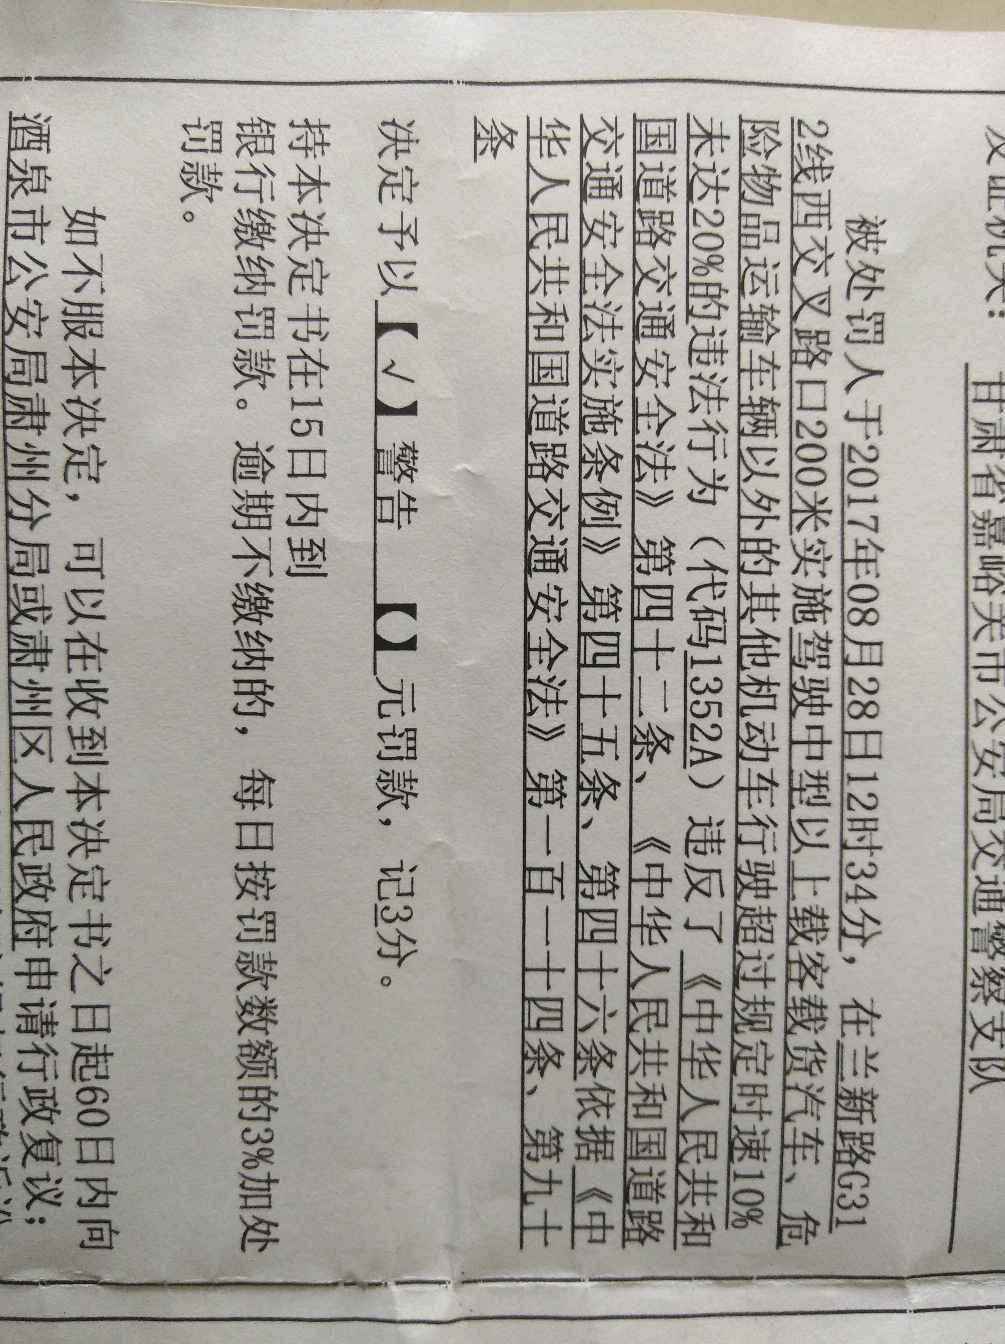 发证机关：甘肃省嘉峪关市公安局交通警察支队
被处罚人于2017年08月28日12时34分，在兰新路G31
2线西交叉路口200米实施驾驶中型以上载客载货汽车、危
险物品运输车辆以外的其他机动车行驶超过规定时速10%
未达20%的违法行为（代码1352A）违反了《中华人民共和
国道路交通安全法》第四十二条、《中华人民共和国道路
交通安全法实施条例》第四十五条、第四十六条依据《中
华人民共和国道路交通安全法》第一百一十四条、第九十
条
决定予以【√】警告 【】元罚款，记3分。
持本决定书在15日内到
银行缴纳罚款。逾期不缴纳的，每日按罚款数额的3%加处
罚款。
如不服本决定，可以在收到本决定书之日起60日内向
酒泉市公安局肃州分局或肃州区人民政府申请行政复议；